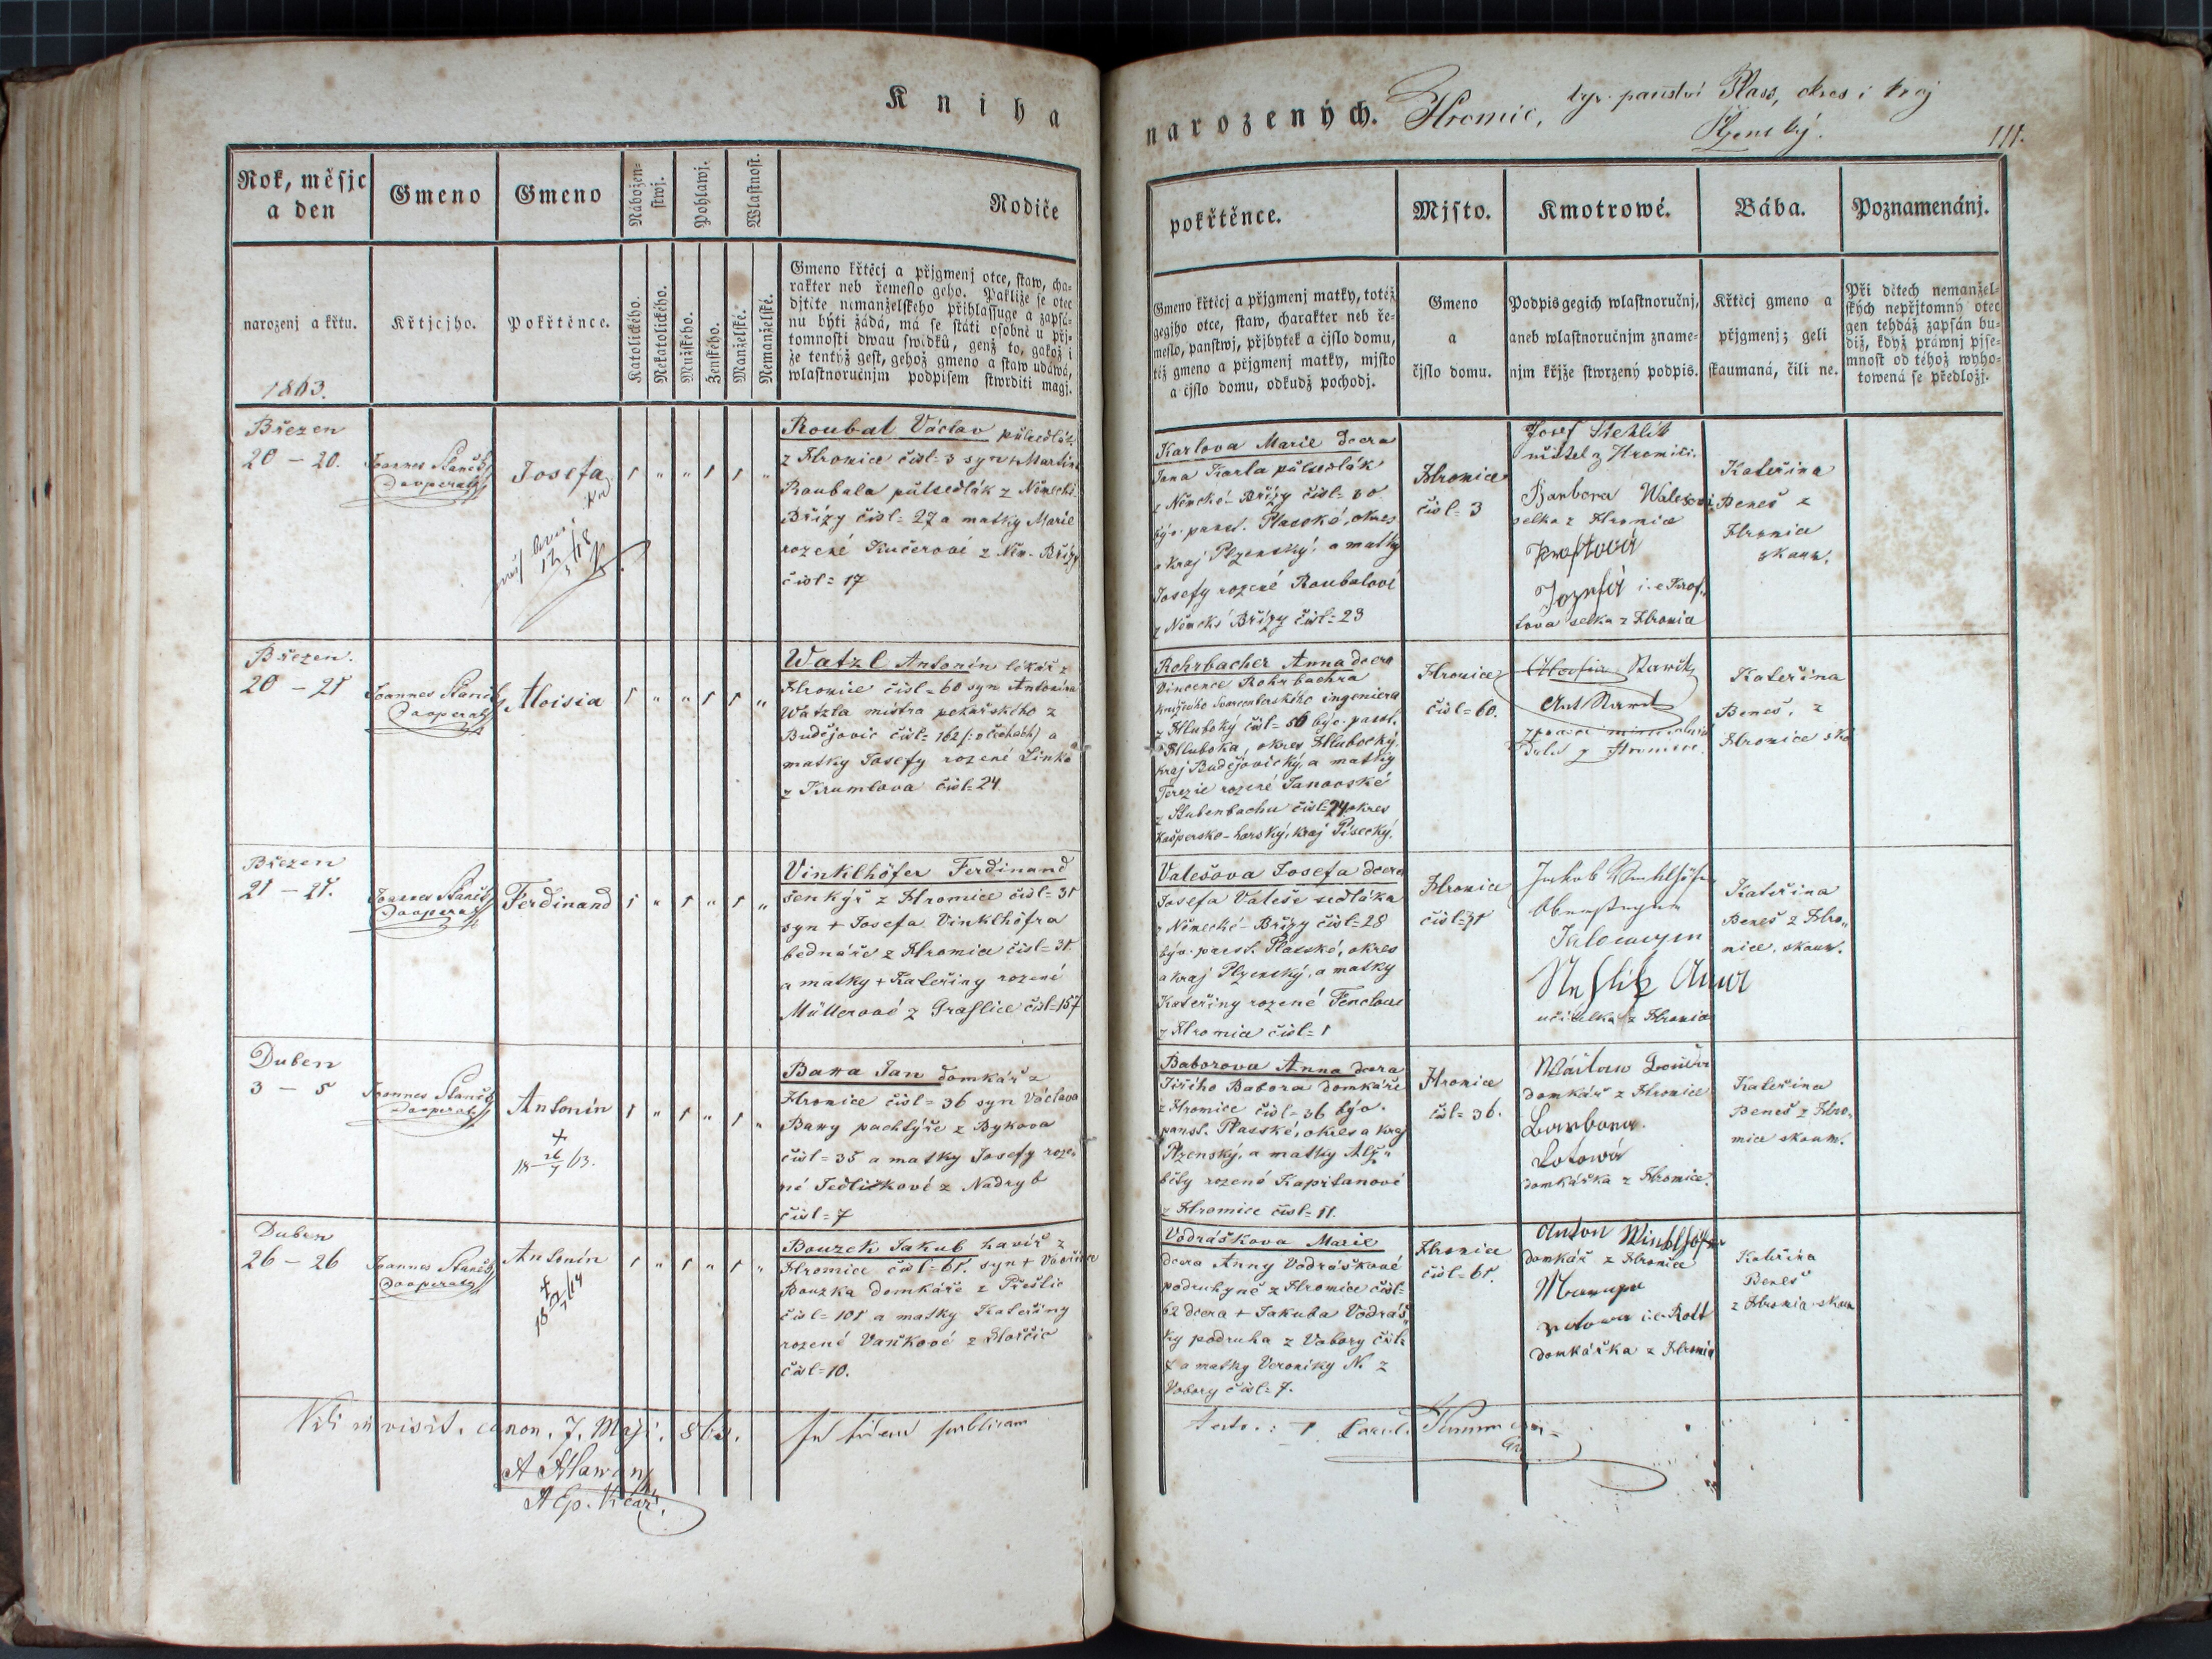 Kniha
narozených.
Hromic, býv. panství Plass, okres i kraj
Plzenský.
111.
Rok, měsjc
a den
Gmeno
Gmeno
Nábožen-
stwj.
Pohlawj.
Wlastnost.
Rodiče
narozenj a křtu.
Křtjcjho.
Pokřtěnce.
Katolického.
Nekatolického.
Mužského.
Ženského.
Manželské.
Nemanželské.
Gmeno křtěcj a přjgmenj otce, staw, cha-
rakter neb řemeslo geho. Pakliže se otec
djtěte nemanželského přihlassuge a zapsá-
nu býti žádá, má se státi osobně u přj-
tomnosti dwau swědků, genž to, gakož i
že tentýž gest, gehož gmeno a staw udáwá,
wlastnoručnjm podpisem stwrditi magj.
pokřtěnce.
Mjsto.
Kmotrowé.
Bába.
Poznamenánj.
Gmeno křtěcj a přjgmenj matky, totéž
gegjho otce, staw, charakter neb ře-
meslo, panstwj, přjbytek a čjslo domu,
též gmeno a přjgmenj matky, mjsto
a čjslo domu, odkudž pocházj.
Gmeno
a
čjslo domu.
Podpis gegich wlastnoručnj,
aneb wlastnoručnjm zname-
njm křjže stwrzený podpis.
Křtěcj gmeno a
přjgmenj; geli
skaumaná, čili ne.
Při dětech nemanžel-
ských nepřjtomný otec
gen tehdáž zapsán bu-
diž, když práwnj pjse-
mnost od téhož wyho-
towená se předložj.
1863.
Březen
20 – 20.
Joannes Staněk
Cooperator
Josefa
Roubal Václav půlsedlák
z Hromice čisl= 3 syn + Martina
Roubala půlsedlák z Německé
Břízy čisl= 27 a matky Marie
rozené Kučerové z Něm. Břízy
čisl= 17
Karlova Marie dcera
Jana Karla půlsedlák
z Německé Břízy čisl= 30
býv. panst. Plasské, okres
a kraj Plzenský, a matky
Josefy rozené Roubalové
z Německé Břízy čisl= 23
Hromice
čisl= 3
Josef Stehlík
učitel z Hromic.
Barbora
selka z Hromice
Jozefa i.e.
tova selka z Hromic
Kateřina
Beneš z
Hromice
skaum.
Březen.
20 – 21
Joannes Staněk
Cooperator
Aloisia
Watzl Antonín lékař z
Hromice čisl= 60 syn Antonína
Watzla mistra pekařského z
Budějovic čisl= 162 (: v Čechách) a
matky Josefy rozené Linka
z Krumlova čisl= 24
Rohrbacher Anna dcera
Vincence Rohrbachra
knížecího švarcenberského ingeniera
z Hluboký čisl= 56 býv. panst.
Hluboka, okres Hlubocký,
kraj Budějovický, a matky
Terezie rozené Janovské
z Stubenbachu čisl= 24 okres
Kašpersko-horský, kraj Písecký.
Hromice
čisl= 60.
Kateřina
Beneš, z
Hromice sk.
Březen
21 – 21.
Joannes Staněk
Cooperator
Ferdinand
Vinklhöfer Ferdinand
šenkýř z Hromice čisl= 31
syn + Josefa Vinklhöfra
bednáře z Hromice čisl= 31
a matky + Kateřiny rozené
Müllerové z Graslice čisl= 157
Valešova Josefa dcera
Josefa Valeše sedláka
z Německé Břízy čisl= 28
býv. panst. Plasské, okres
a kraj Plzenský, a matky
Kateřiny rozené Fenclové
z Hromic čisl= 1
Hromice
čisl= 31
Jakob
učitelka z Hromic
Kateřina
Beneš z Hro„
mice, skaum.
Duben
3 – 5
Joannes Staněk
Cooperator
Antonín
+
18 26/7 63.
Bawa Jan domkář z
Hromice čisl= 36 syn Václava
Bawy pachtýře z Bykova
čisl= 35 a matky Josefy roze„
né Jedličkové z Nadryb
čisl= 7
Baborova Anna dcera
Jiřího Babora domkáře
z Hromice čisl= 36 býv.
panst. Plasské, okres a kraj
Plzenský, a matky Alž„
běty rozené Kapitanové
z Hromice čisl= 11.
Hromice
čisl= 36.
domkář z Hromice
Barbora
domkářka z Hromice
Kateřina
Beneš z Hro„
mic skaum.
Duben
26 – 26
Joannes Staněk
Cooperator
Antonín
+
Bouzek Jakub havíř z
Hromice čisl= 61. syn + Vavřince
Bouzka domkáře z Přeštic
čisl= 101 a matky Kateřiny
rozené Vaňkové z
čisl= 10.
Vodráškova Marie
dcera Anny Vodráškové
podruhyně z Hromice čisl=
62 dcera + Jakuba Vodráš„
ky podruha z Vobory čisl=
7 a matky Veroniky N. z
Vobory čisl= 7.
Hromice
čisl= 61.
Anton Winklhöfer
domkář z Hromice
i.e. Rott
domkářka z Hromic
Kateřina
Beneš
z Hromic skaum
Vidi in visit. canon. 7. Maji 863.
A Hlawan
A Ep. Vicar.
In fidem publicam